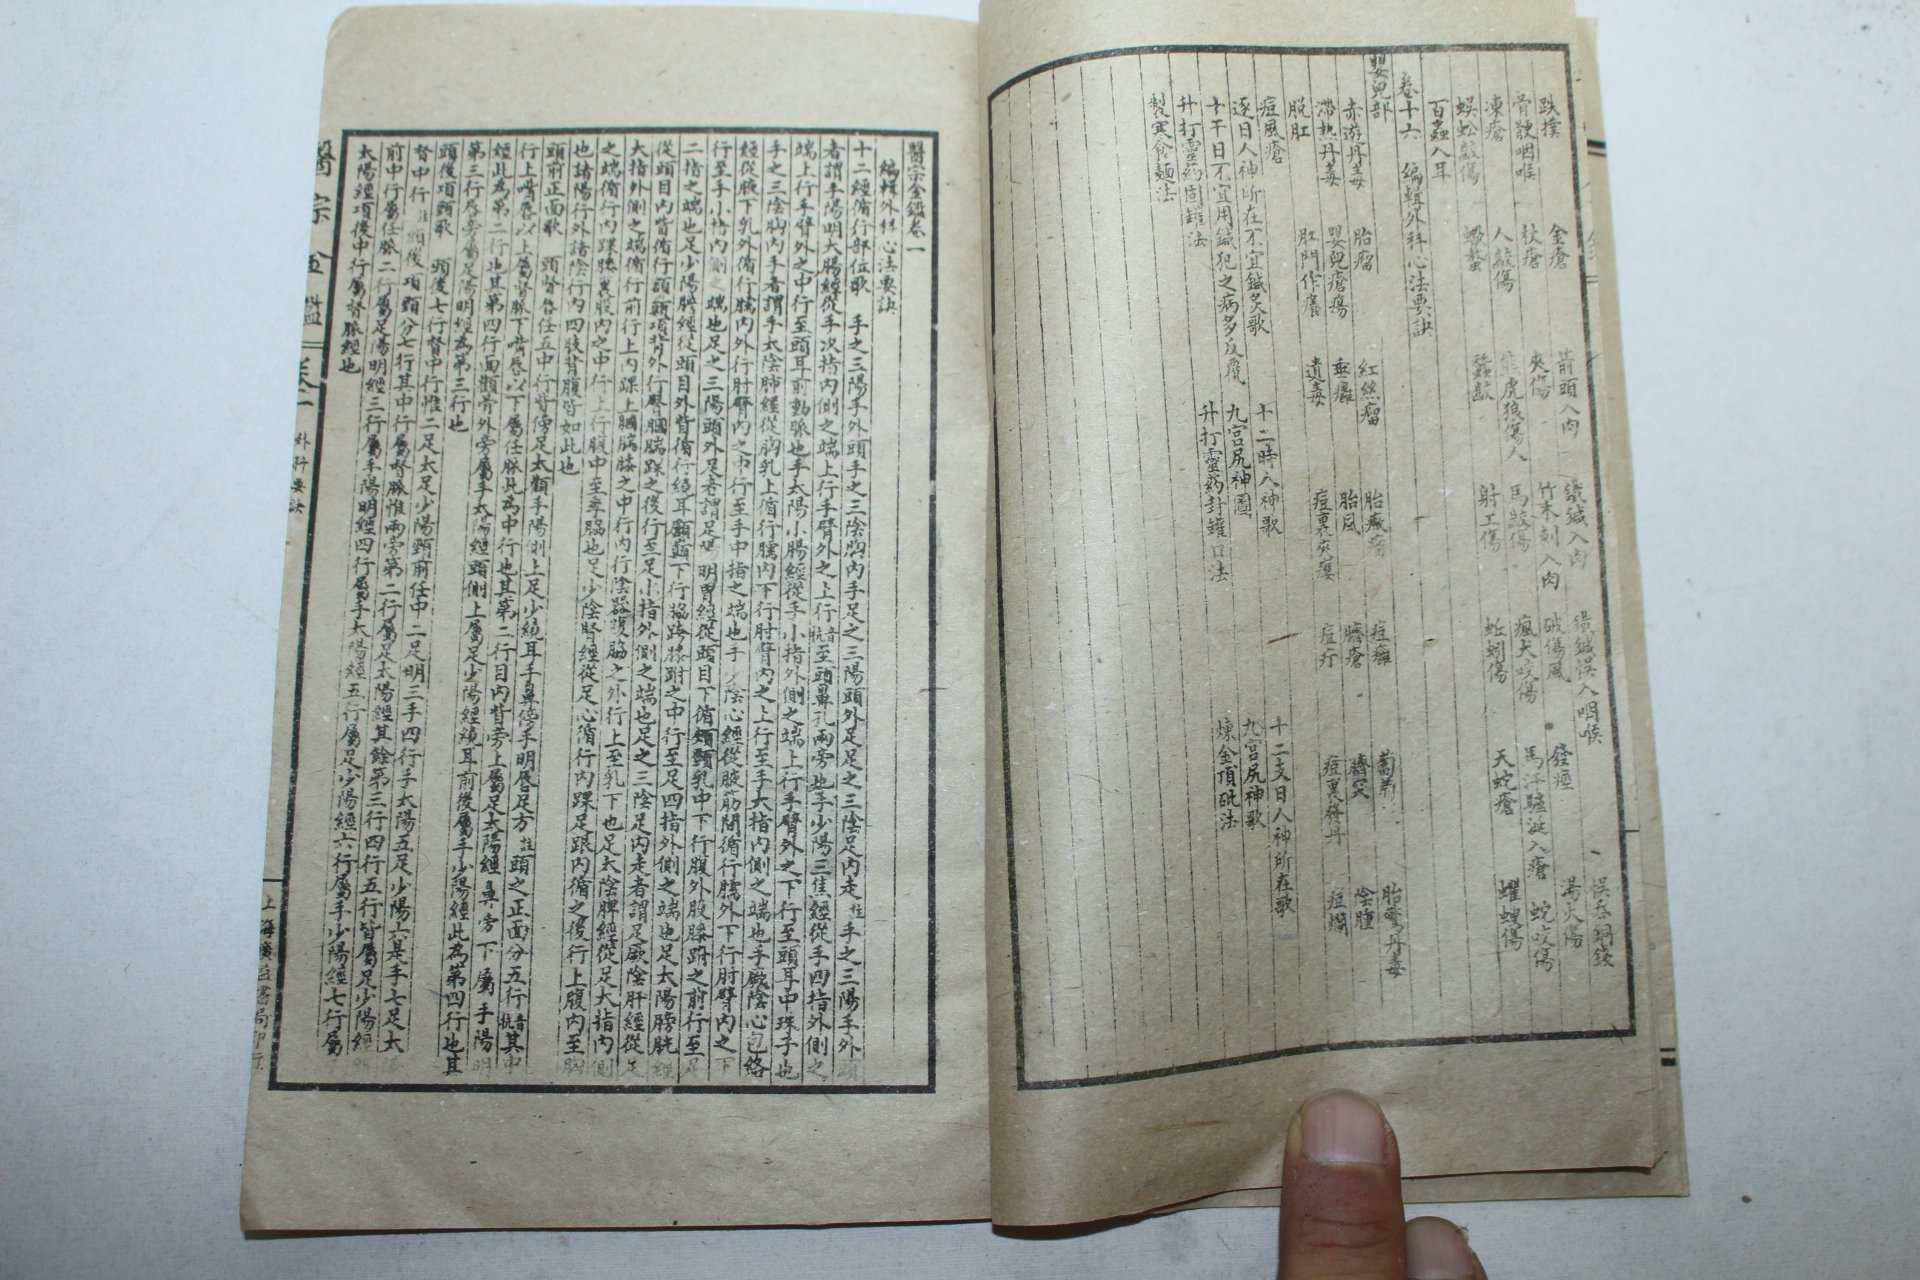 跌撲 金瘡 箭頭入肉 鐵鍼入肉 鐵鍼誤入咽喉 誤吞銅錢
骨骾咽喉 杖瘡 夾傷 竹木刺入肉 破傷風 發痙 湯火傷
凍瘡 人齩傷 熊虎狼傷人 馬齩傷 瘋犬咬傷 馬汗驢涎入瘡 蛇咬傷
蜈蚣齩傷 蠍螫 蠶齩 射工傷 蚯蚓傷 天蛇瘡 蠼螋傷
百蟲入耳
卷十六 編輯外科心法要訣
嬰兒部
赤遊丹毒 胎瘤 紅絲瘤 胎癥瘤 痘癰 葡萄 胎驚丹毒
滯熱丹毒 嬰兒瘡瘍 垂癰 胎風 臍瘡 臍突 陰腫
脫肛 肛門作癢 遺毒 痘裏夾癭 痘疔 痘裏發丹 痘爛
痘風瘡
逐日人神所在不宜鍼灸歌 十二時人神歌 十二支日人神所在歌
十干日不宜用鍼犯之病多反覆 九宮尻神圖 九宮尻神歌
升打靈药固罐法 升打靈药封罐口法 煉金頂砒法
製寒食麵法
醫宗金鑑卷一
編輯外科心法要訣
十二經循行部位歌 手之三陽手外頭手之三陰胸內手足之三陽頭外足足之三陰足內走註手之三陽手外頭
者謂手陽明大腸經從手次指內側之端上行手臂外之上行音杭至頭鼻孔兩旁也手少陽三焦經從手四指外側之
端上行手臂外之中行至頭耳前動脈也手太陽小腸經從手小指外側之端上行手臂外之下行至頭耳中珠子也
手之三陰胸內手者謂手太陰肺經從胸乳上循行臑內下行肘臂內之上行至手大指內側之端也手厥陰心包絡
經從腋下乳外循行臑內外行肘臂內之中行至手中指之端也手少陰心經從腋筋間循行臑外下行肘臂內之下
行至手小指內側之端也足之三陽頭外足者謂足陽明胃經從頭目下循頰頸乳中下行腹外股膝跗之前行至足
二指之端也足少陽膽經從頭目外眥循行繞耳顱顖下行脇跨膝跗之中行至足四指外側之端也足太陽膀胱經
從頭目內眥循行額顱項背外行臀膕腨踝之後行至足小指外側之端也足之三陰足內走者謂足厥陰肝經從足
大指外側之端循行前行上內踝上膕腨膝之中行內行陰器腹脇之外行上至乳下也足太陰脾經從足大指內側
之端循行內踝膝裏股內之中行上行腹中至季脇也足少陰腎經從足心循行內踝足跟內循之後行上腹內至胸
也諸陽行外諸陰行內四肢背腹皆如此也
頭前正面歌 頭督各任五中行眥傍足太顴手陽側上足少繞耳手鼻傍手明唇足方註頭之正面分五行音杭其中
行上嘴唇以上屬督脈下嘴唇以下屬任脈此為中行也其第二行目內眥旁上屬足太陽經鼻旁下屬手陽明
經此為第二行也其第四行面顴骨外旁屬手太陽經頭側上屬足少陽經繞耳前後屬手少陽經此為第四行也其
第三行唇旁屬足陽明經為第三行也
頭後項頸歌 頭後七行督中行惟二足太足少陽頸前任中二足明三手四行手太陽五足少陽六是手七足太
督中行註頭後項頸分七行其中行屬督脈惟兩旁第二行屬足太陽經其餘第三行四行五行皆屬足少陽經頸
前中行屬任脈二行屬足陽明經三行屬手陽明經四行屬手太陽經五行屬足少陽經六行屬手少陽經七行屬
太陽經項後中行屬督脈經也
醫宗金鑑
卷一
外科要訣
上海廣益書局印行